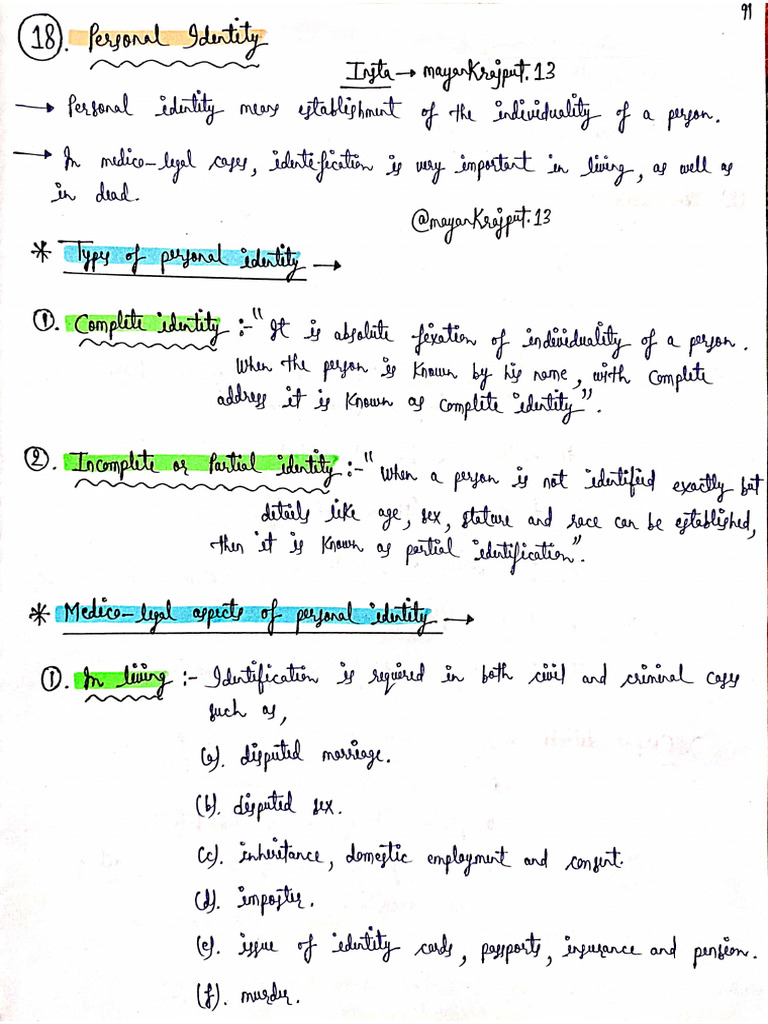 91
18. Personal Identity
Insta → mayankrajput.13
→ Personal identity means establishment of the individuality of a person.
→ In medico-legal cases, identification is very important in living, as well as
in dead.
@mayankrajput.13
* Types of personal identity →
①. Complete identity :- "It is absolute fixation of individuality of a person.
When the person is known by his name, with complete
address it is known as complete identity".
②. Incomplete or Partial identity :- "When a person is not identified exactly but
details like age, sex, stature and race can be established,
then it is known as partial identification".
* Medico-legal aspects of personal identity →
①. In living :- Identification is required in both civil and criminal cases
such as,
(a). disputed marriage.
(b). disputed sex.
(c). inheritance, domestic employment and consent.
(d). imposter.
(e). issue of identity cards, passports, insurance and pension.
(f). murder.